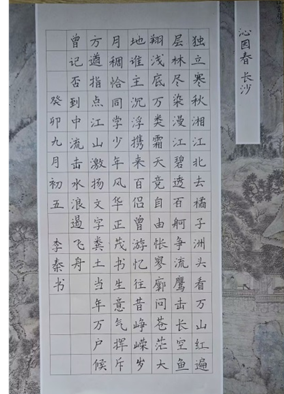 沁园春 长沙
独立寒秋湘江北去橘子洲头看万山红遍
层林尽染漫江碧透百舸争流鹰击长空鱼
翔浅底万类霜天竞自由怅寥廓问苍茫大
地谁主沉浮携来百侣曾游忆往昔峥嵘岁
月稠恰同学少年风华正茂书生意气挥斥
方遒指点江山激扬文字粪土当年万户侯
曾记否到中流击水浪遏飞舟
癸卯九月初五 李秦书